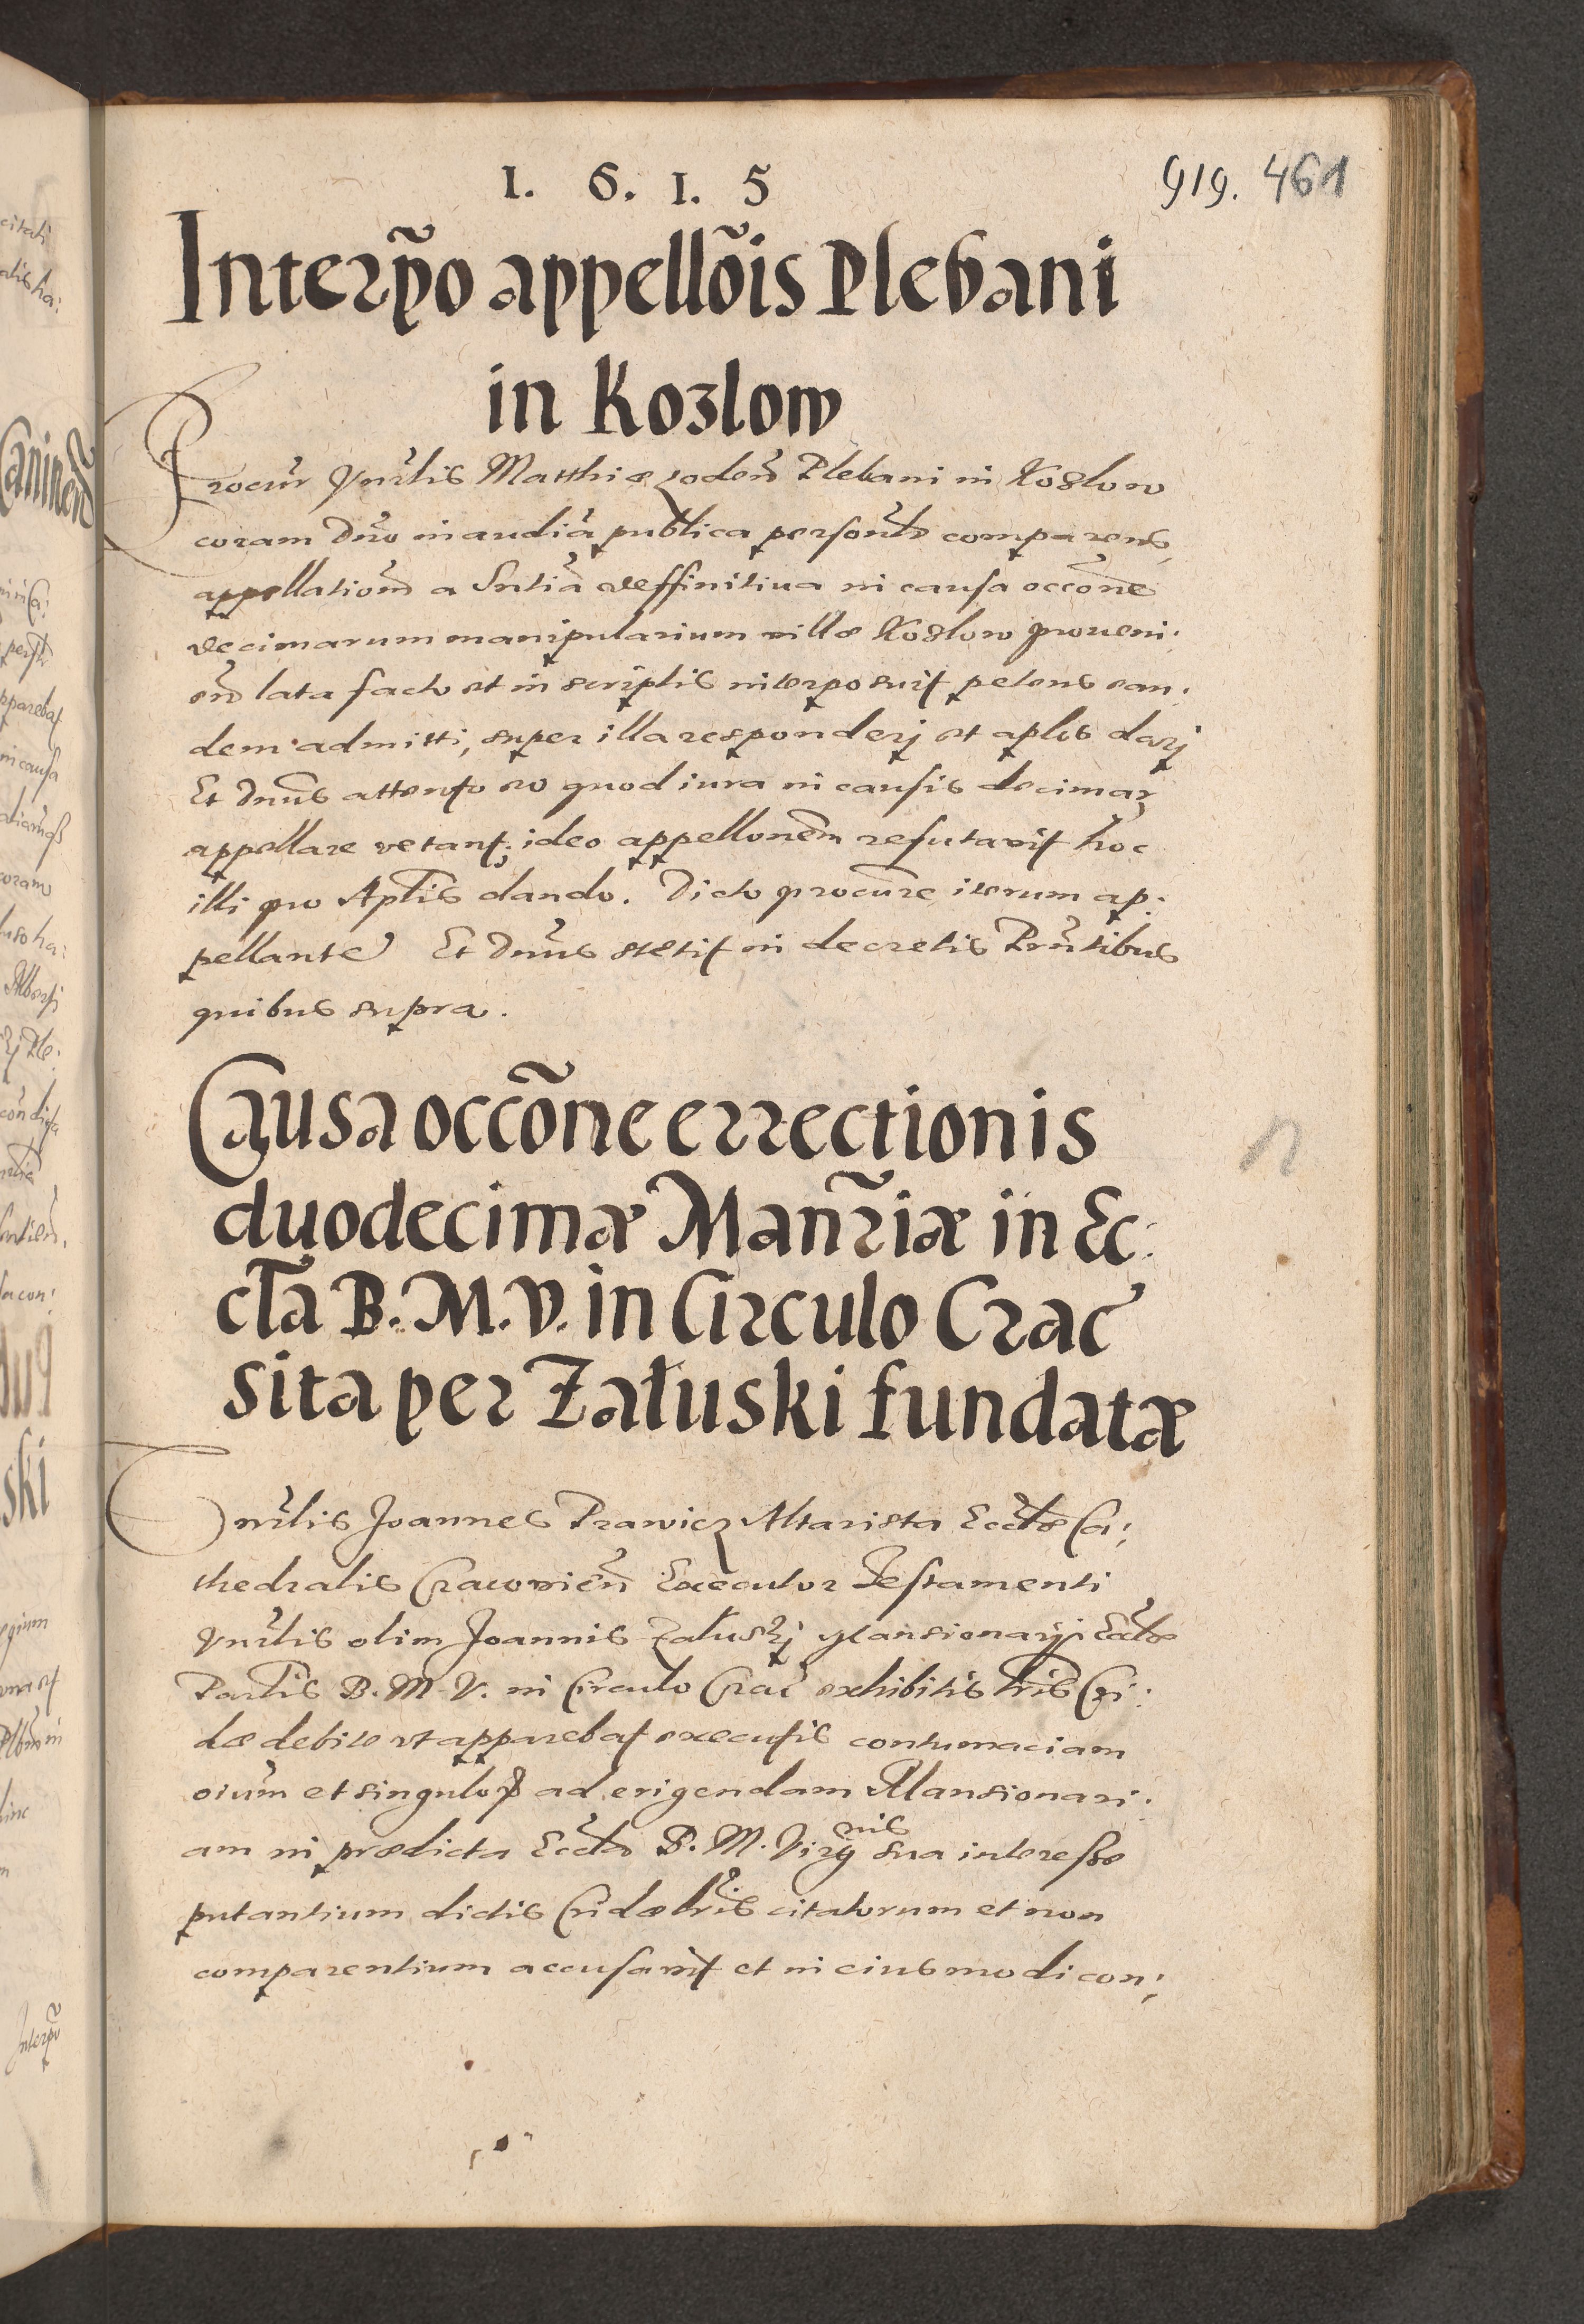 1. 6. 1. 5
919. 461
Interp̃o appellõis Plebani
in Kozlow
Procur̃ Vnr̃lis Matthiæ eodem̃ Plebani in Kozlow
coram Dño in audiã publica personlr̃ comparens
appellationẽ a Sntiã deffinitiua in causa occõne
decimarum manipularium villæ Kozlow proueni:
eñ lata facto et in scriptis interposuit petens ean:
dem admitti, super illa responderj et aplos darj
Et Dnũs attento eo quod iura in causis decimar
appellare vetant: ideo appellonẽm refutavit hoc
illi pro Aplĩs dando. Dicto procurẽ iterum ap:
pellante Et Dnũs stetit in decretis Prñtibus
quibus supra.
Causa occõne errectionis
duodecimæ Manr̃iæ in Ec:
clã B. M. V. in Circulo Crac̃
sita per Załuski fundatæ
Vnr̃lis Joannes Prawicz Altarista Ecclæ̃ Ca:
thedralis Cracovieñ Executor Testamenti
Vnr̃lis olim Joannis Załuskj Mansionarij Ecclæ̃
Parlĩs B. M. V. in Circulo Crac̃ exhibitis lrĩs Cri:
dæ debite vt apparebat executis contumaciam
oiũm et singulor ad erigendam Mansionari:
am in prædicta Ecclã B. M. Virgnis sua interesse
putantium dictis Cridæ lrĩs citatorum et non
comparentium accusavit et in eiusmodi con: